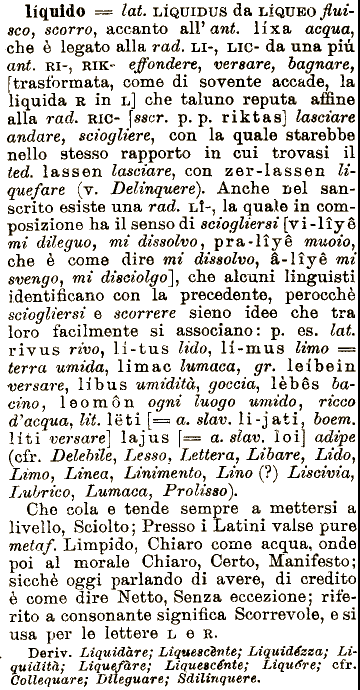 líquido = lat. LÍQUIDUS da LÍQUEO flui-
sco, scorro, accanto all' ant. líxa acqua,
che è legato alla rad. LI-, LIC- da una più
ant. RI-, RIK- effondere, versare, bagnare,
[trasformata, come di sovente accade, la
liquida R in L] che taluno reputa affine
alla rad. RIC- [sscr. p. p. riktas] lasciare
andare, sciogliere, con la quale starebbe
nello stesso rapporto in cui trovasi il
ted. lassen lasciare, con zer-lassen li-
quefare (v. Delinquere). Anche nel san-
scrito esiste una rad. LÎ-, la quale in com-
posizione ha il senso di sciogliersi [vi-lîyê
mi dileguo, mi dissolvo, pra-lîyê muoio,
che è come dire mi dissolvo, â-lîyê mi
svengo, mi disciolgo], che alcuni linguisti
identificano con la precedente, perocchè
sciogliersi e scorrere sieno idee che tra
loro facilmente si associano: p. es. lat.
rivus rivo, lí-tus lido, lí-mus limo =
terra umida, limac lumaca, gr. leíbein
versare, líbus umidità, goccia, lèbês ba-
cino, leomôn ogni luogo umido, ricco
d'acqua, lit. lëti [= a. slav. li-jati, boem.
líti versare] lajus [= a. slav. loi] adipe
(cfr. Delebile, Lesso, Lettera, Libare, Lido,
Limo, Linea, Linimento, Lino (?) Liscivia,
Lubrico, Lumaca, Prolisso).
Che cola e tende sempre a mettersi a
livello, Sciolto; Presso i Latini valse pure
metaf. Limpido, Chiaro come acqua, onde
poi al morale Chiaro, Certo, Manifesto;
sicchè oggi parlando di avere, di credito
è come dire Netto, Senza eccezione; rife-
rito a consonante significa Scorrevole, e si
usa per le lettere L e R.
Deriv. Liquidàre; Liquescènte; Liquidézza; Li-
quidità; Liquefàre; Liquescénte; Liquóre; cfr.
Collequare; Dileguare; Sdilinquere.